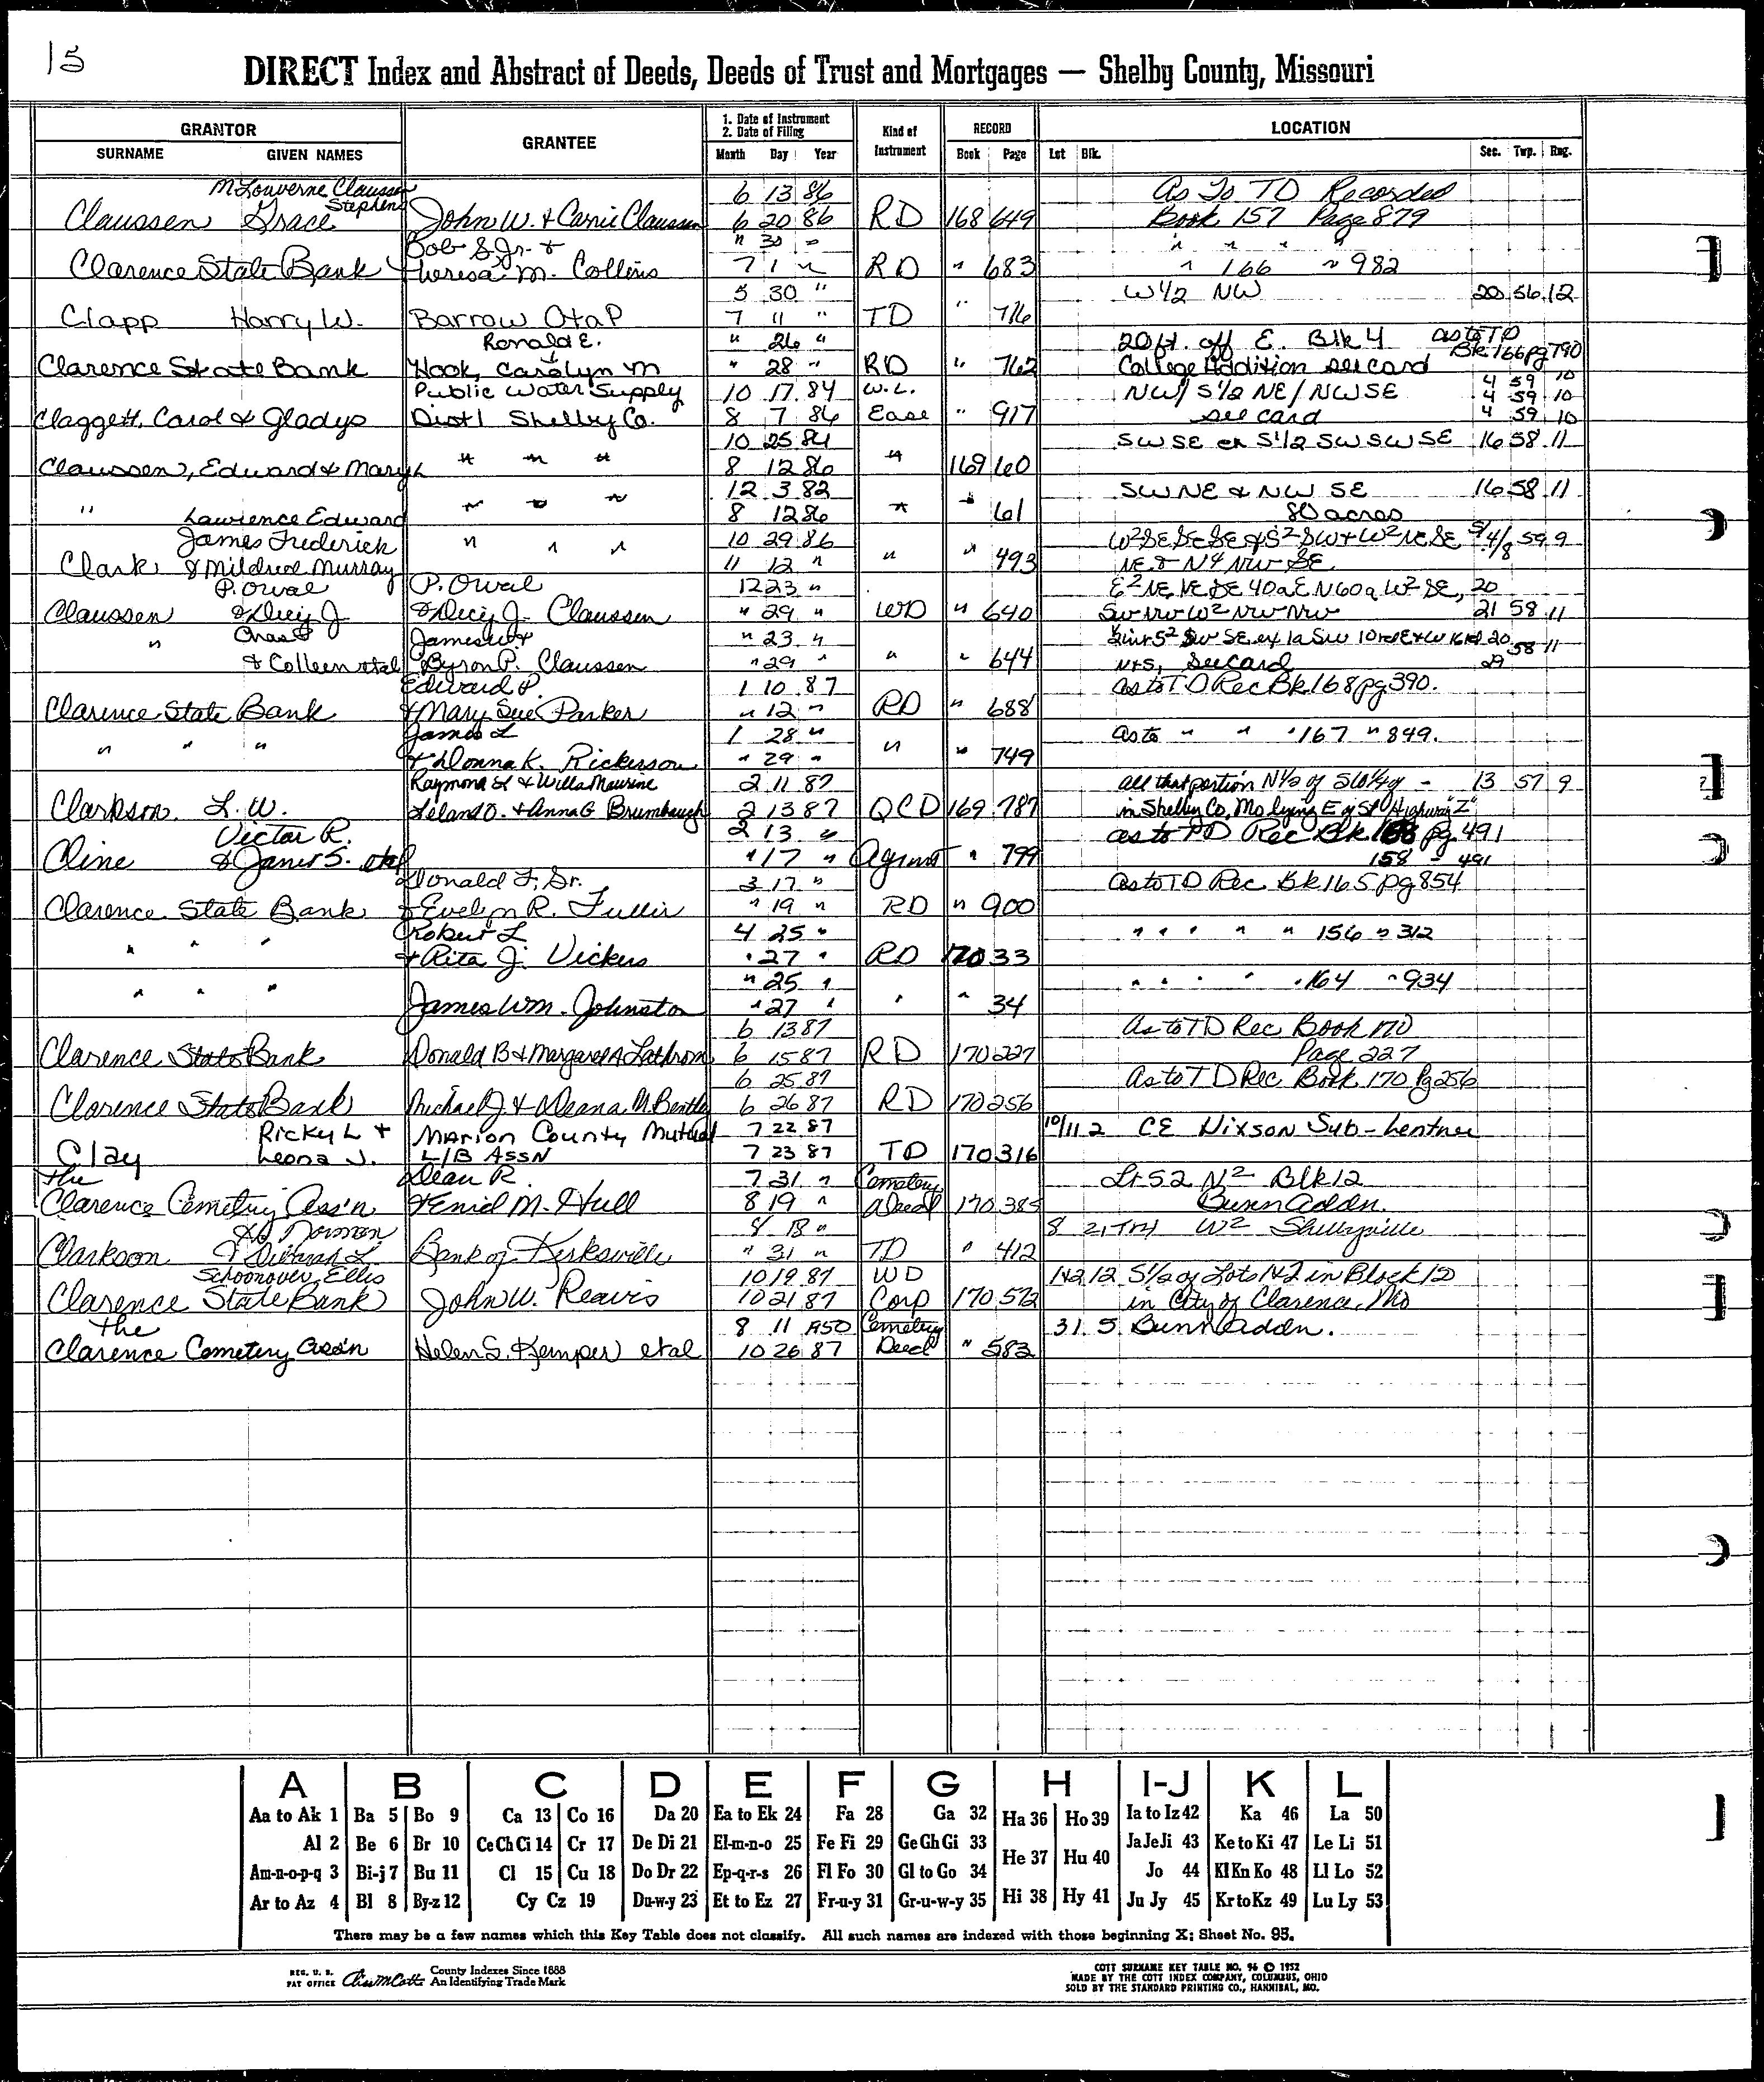 15
DIRECT Index and Abstract of Deeds, Deeds of Trust and Mortgages — Shelby County, Missouri
GRANTOR
SURNAME GIVEN NAMES
GRANTEE
1. Date of Instrument
2. Date of Filing
Month Day Year
Kind of
Instrument
RECORD
Book Page
LOCATION
Lot Blk. Sec. Twp. Rng.
M Louverne Claussen 6 13 86 As To TD Recorded
Stephens
Claussen Grace John W. & Carrie Claussen 6 20 86 RD 168 649 Book 157 Page 879
Bob S Jr. & " 30 " " " " "
Clarence State Bank Theresa M. Collins 7 1 " RD " 683 " 166 " 982
5 30 " W 1/2 NW 20 56 12
Clapp Harry W. Barrow Ota P 7 11 " TD " 716
Ronald E. " 26 " 20 ft. off E. Blk 4 as to TD
Clarence State Bank Hook, Carolyn M " 28 " RD " 762 College Addition see card Bk. 166 pg 790
Public Water Supply 10 17 84 W.L. NW/ S 1/2 NE/ NW SE 4 59 10
4 59 10
Claggett, Carol & Gladys Dist 1 Shelby Co. 8 7 86 Ease " 917 see card 4 59 10
10 25 84 SW SE ex S 1/2 SW SW SE 16 58 11
Claussen, Edward & Mary " " " 8 12 86 " 169 60
12 3 82 SW NE & NW SE 16 58 11
" " " " 8 12 86 " " 61 80 acres
Lawrence Edward
James Frederick " " " 10 29 86 W2 SE SE SE & S2 SW & W2 NE SE 5/4/8 59 9
Clark & Mildred Murray 11 12 " " " 493 NE & N4 NW SE
P. Orval P. Orval 12 23 " E2 NE NE SE 40a E N60a W2 SE, 20
Claussen & Decy J & Decy J. Claussen " 29 " WD " 640 SW NW W2 NW NW 21 58 11
" Chas & James W & " 23 " S2 SW SE ex 1a SW 10 rd E & W 16 rd 20 58 11
& Colleen etal Byron P. Claussen " 29 " " " 644 N & S, See Card 29
Edward P. 1 10 87 as to TD Rec Bk 168 pg 390.
Clarence State Bank & Mary Sue Parker " 12 " RD " 688
James L 1 28 " as to " " " 167 " 849.
" " " & Donna K. Rickerson " 29 " " " 749
Raymond L & Willa Maurine 2 11 87 all that portion N 1/2 of SW 1/4 of - 13 57 9
Clarkson L. W. Leland O. & Anna G Brumbaugh 2 13 87 QCD 169 787 in Shelby Co, Mo lying E of St Highway "Z"
Victor R. 2 13 " as to TD Rec Bk 168 pg 491
Cline & Janet S. etal " 17 " Agrmt " 799 158 " 491
Donald F, Sr. 3 17 " as to TD Rec Bk 165 pg 854
Clarence State Bank & Evelyn R. Fuller " 19 " RD " 900
Robert L 4 25 " " " " " " 156 " 312
" " " & Rita J. Vickers " 27 " RD 170 33
" 25 " " " " " " 164 " 934
" " " James Wm. Johnston " 27 " " " 34
6 13 87 As to TD Rec Book 170
Clarence State Bank Donald B & Margaret A Lathrom 6 15 87 RD 170 227 Page 227
6 25 87 As to TD Rec Book 170 Pg 256
Clarence State Bank Michael J & Deana M Bentley 6 26 87 RD 170 256
Ricky L & Marion County Mutual 7 22 87 10/11 2 CE Dixson Sub-Lentner
Clay Leona J. L/B ASSN 7 23 87 TD 170 316
The Dean R. 7 31 " Cemetery Lt 52 N2 Blk 12
Clarence Cemetery Ass'n & Enid M. Hull 8 19 " Deed 170 385 Bunn Addn.
Norman 8 18 " 8 21 W2 Shelbyville
Clarkson & L. Bank of Kirksville " 31 " TD " 412
Schoonover, Ellis 10 19 87 WD 1&2 12 S 1/2 of Lots 1&2 in Block 12
Clarence State Bank John W. Reavis 10 21 87 Corp 170 572 in City of Clarence, Mo
The 8 11 1950 Cemetery 31 5 Bunn Addn.
Clarence Cemetery Ass'n Helen S. Kemper etal 10 26 87 Deed " 583
A B C D E F G H I-J K L
Aa to Ak 1 Ba 5 Bo 9 Ca 13 Co 16 Da 20 Ea to Ek 24 Fa 28 Ga 32 Ha 36 Ho 39 Ia to Iz 42 Ka 46 La 50
Al 2 Be 6 Br 10 Ce Ch Ci 14 Cr 17 De Di 21 El-m-n-o 25 Fe Fi 29 Ge Gh Gi 33 He 37 Hu 40 Ja Je Ji 43 Ke to Ki 47 Le Li 51
Am-n-o-p-q 3 Bi-j 7 Bu 11 Cl 15 Cu 18 Do Dr 22 Ep-q-r-s 26 Fl Fo 30 Gl to Go 34 Jo 44 Kl Kn Ko 48 Ll Lo 52
Ar to Az 4 Bl 8 By-z 12 Cy Cz 19 Du-w-y 23 Et to Ez 27 Fr-u-y 31 Gr-u-w-y 35 Hi 38 Hy 41 Ju Jy 45 Kr to Kz 49 Lu Ly 53
There may be a few names which this Key Table does not classify. All such names are indexed with those beginning X; Sheet No. 95.
REG. U. S. PAT OFFICE County Indexes Since 1888
An Identifying Trade Mark
COTT SURNAME KEY TABLE NO. 96 © 1952
MADE BY THE COTT INDEX COMPANY, COLUMBUS, OHIO
SOLD BY THE STANDARD PRINTING CO., HANNIBAL, MO.